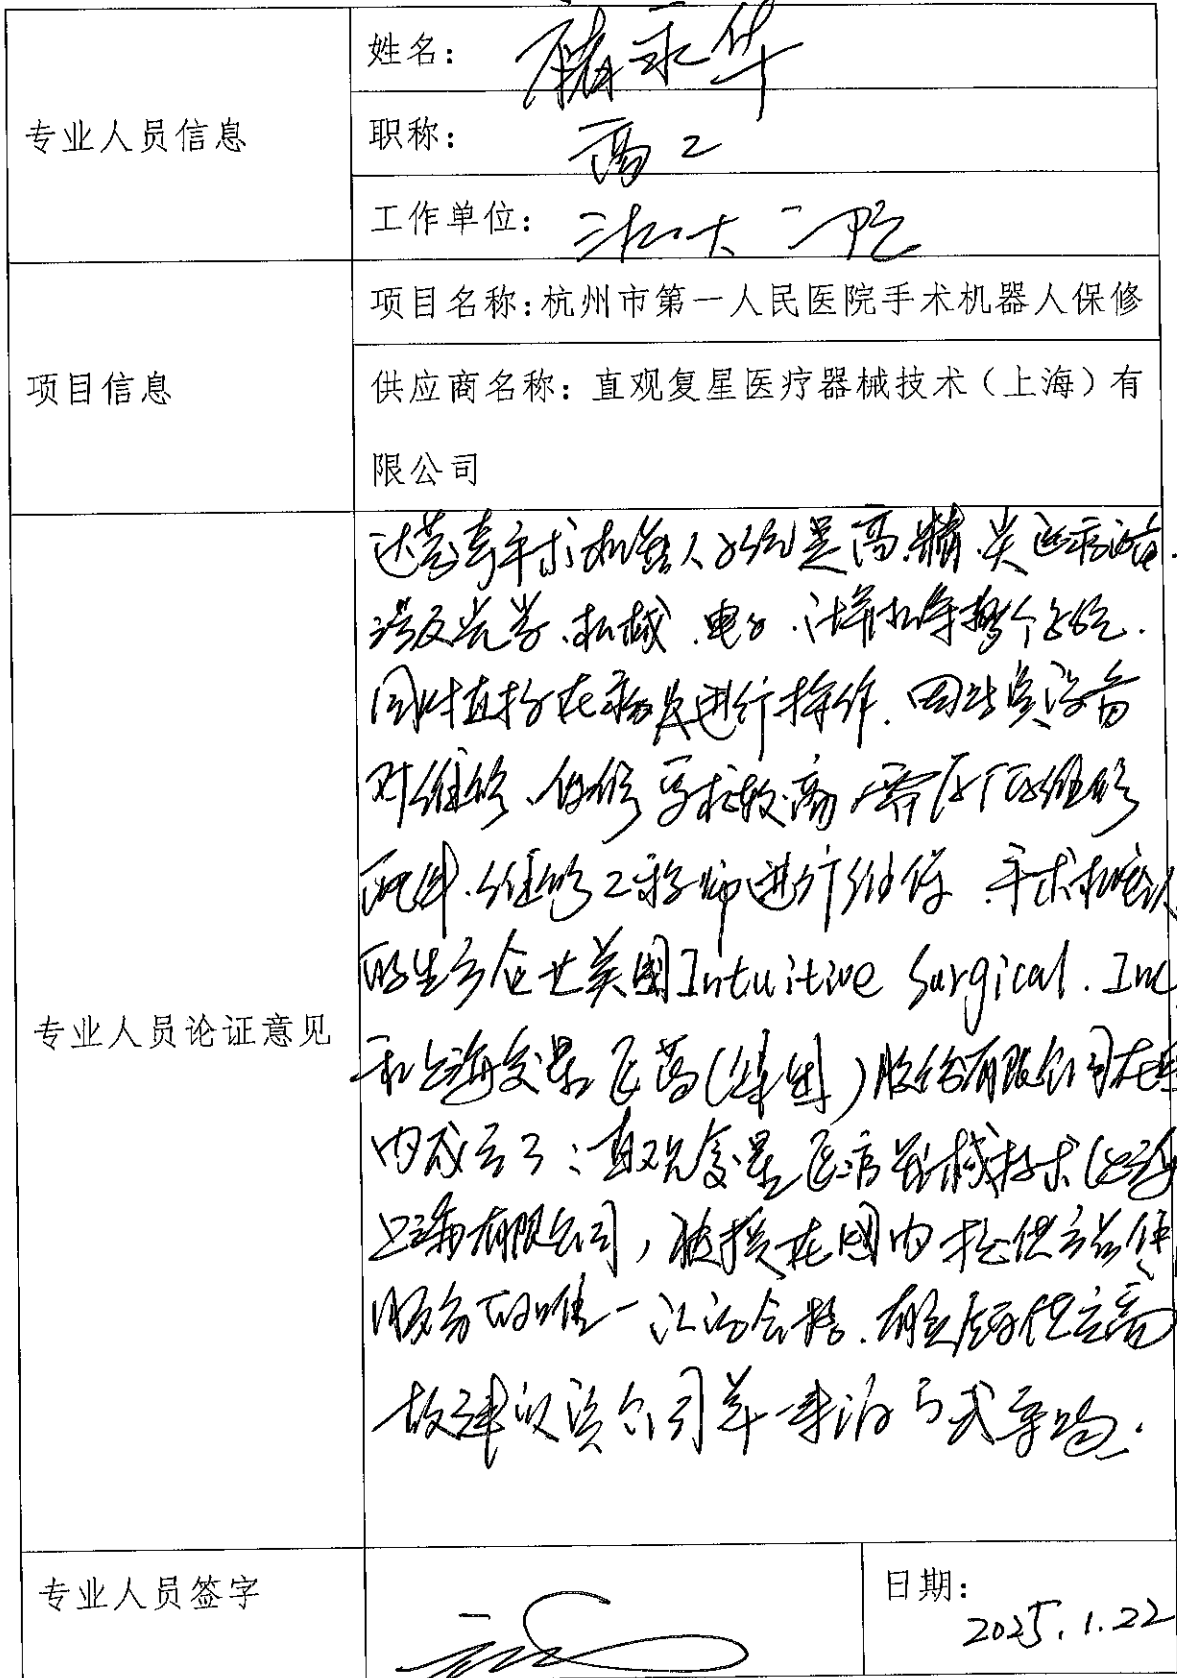 专业人员信息
姓名：永华
职称：高工
工作单位：浙大一院
项目信息
项目名称：杭州市第一人民医院手术机器人保修
供应商名称：直观复星医疗器械技术（上海）有
限公司
专业人员论证意见
达芬奇手术机器人系统是高精尖医疗设备.
涉及光学、机械、电子、计算机等整个系统.
同时直接在病员进行操作.因此类设备
对维修、保修要求较高 需原厂的维修
配件、维修工程师进行维保.手术机器人
的生产企业美国Intuitive Surgical. Inc
和上海复星医药(集团)股份有限公司在
内成立了：直观复星医疗器械技术(上海
上海有限公司，被授在国内提供产品
服务的唯一合.
故建议该公司单一来源方式采购.
专业人员签字
日期：
2025.1.22